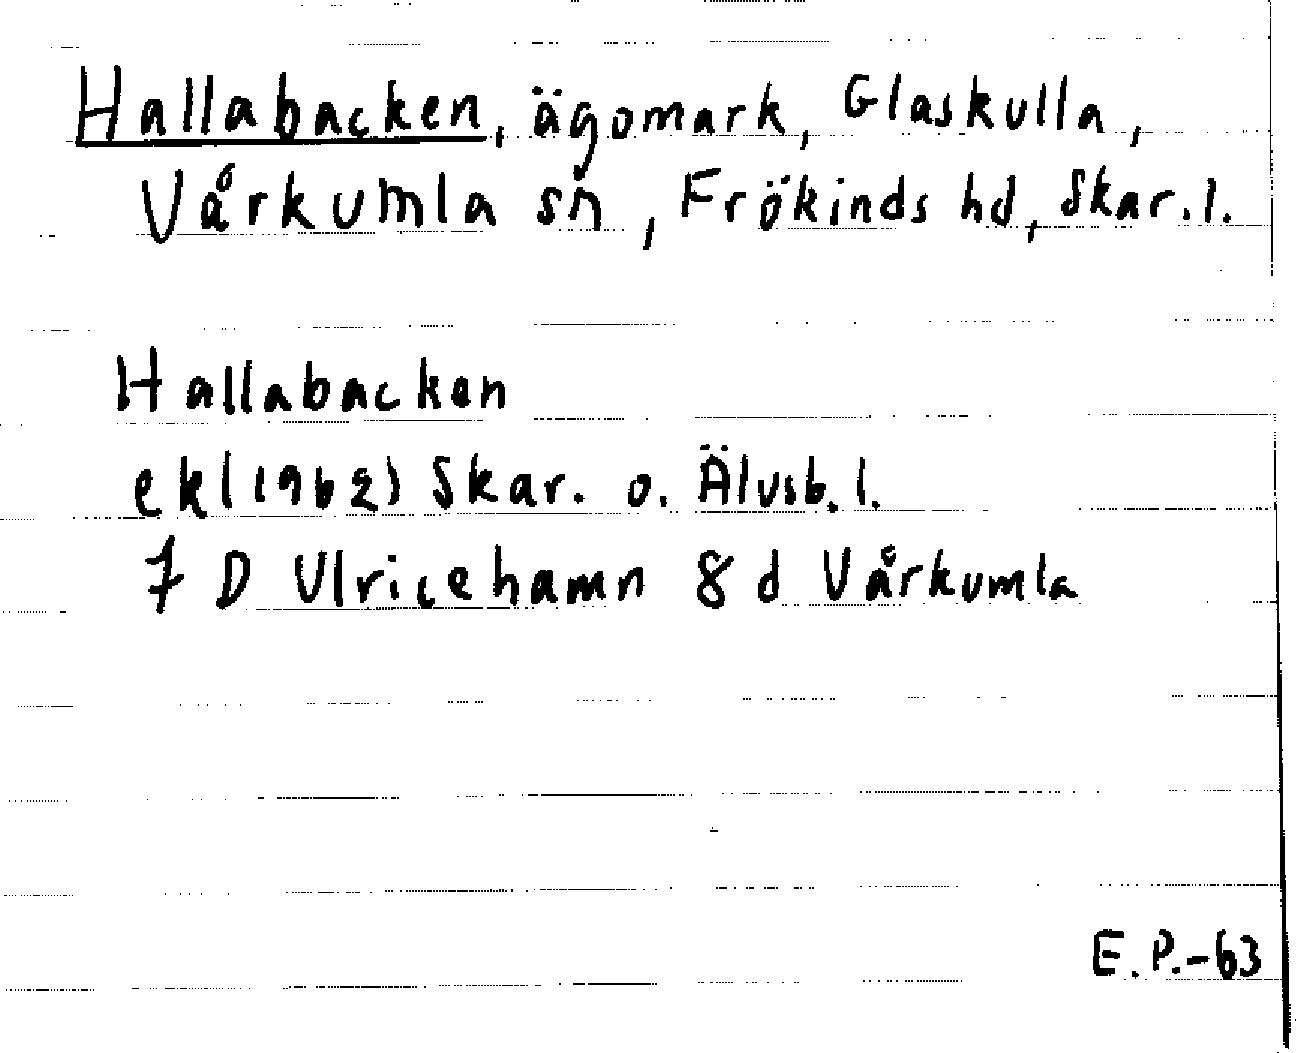 Hallabacken, ägomark, Glaskulla,
Vårkumla sn, Frökinds hd, Skar.l.
Hallabacken
ekl(1962) Skar. o. Älvsb.l.
7 D Ulricehamn 8 d Vårkumla
E.P.-63